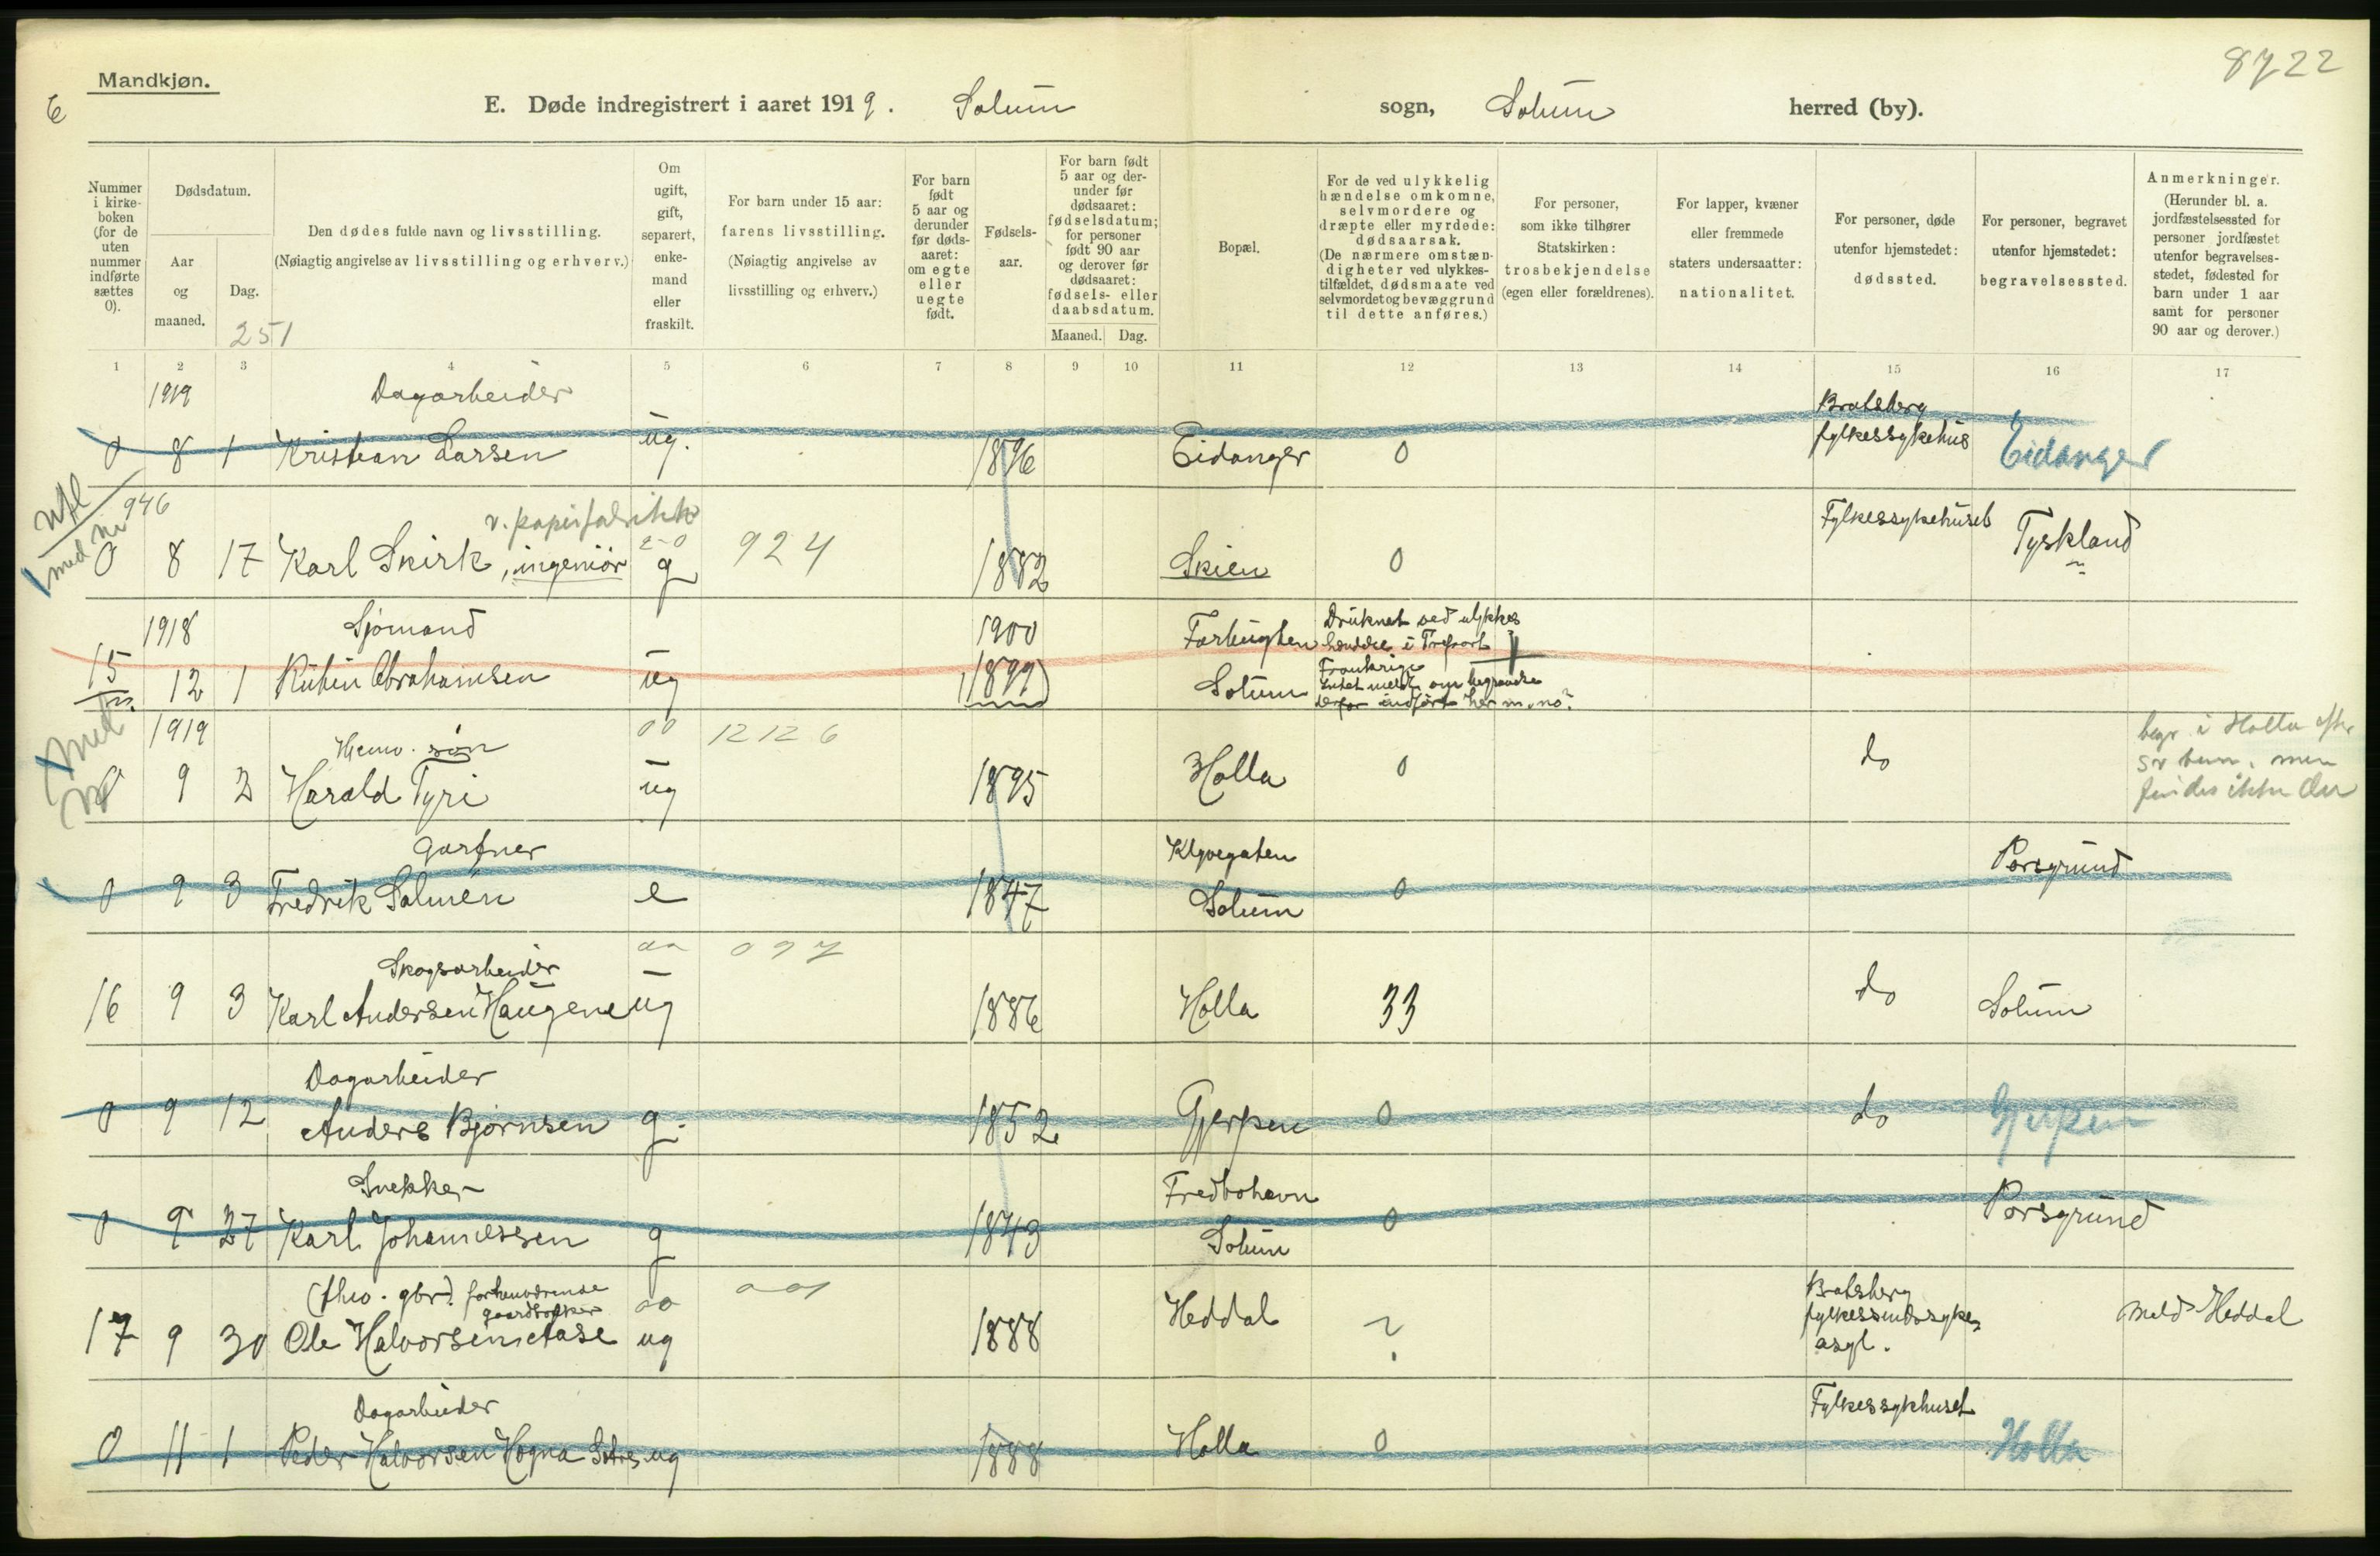 8722
6
Mandkjøn.
E. Døde indregistrert i aaret 1919. Solum sogn, Solum herred (by).
Nummer i kirkeboken (for de uten nummer indførte sættes 0).
Dødsdatum.
Aar og maaned.
Dag.
251
Den dødes fulde navn og livsstilling.
(Nøiagtig angivelse av livsstilling og erhverv.)
Om ugift, gift, separert, enkemand eller fraskilt.
For barn under 15 aar: farens livsstilling.
(Nøiagtig angivelse av livsstilling og erhverv.)
For barn født 5 aar og derunder før dødsaaret: om egte eller uegte født.
Fødselsaar.
For barn født 5 aar og derunder før dødsaaret: fødselsdatum; for personer født 90 aar og derover før dødsaaret: fødsels- eller daabsdatum.
Maaned. Dag.
Bopæl.
For de ved ulykkelig hændelse omkomne, selvmordere og dræpte eller myrdede: dødsaarsak.
(De nærmere omstændigheter ved ulykkestilfældet, dødsmaate ved selvmordet og bevæggrund til dette anføres.)
For personer, som ikke tilhører Statskirken: trosbekjendelse (egen eller forældrenes).
For lapper, kvæner eller fremmede staters undersaatter: nationalitet.
For personer, døde utenfor hjemstedet: dødssted.
For personer, begravet utenfor hjemstedet: begravelsessted.
Anmerkninger.
(Herunder bl. a. jordfæstelsessted for personer jordfæstet utenfor begravelsesstedet, fødested for barn under 1 aar samt for personer 90 aar og derover.)
1 2 3 4 5 6 7 8 9 10 11 12 13 14 15 16 17
1919 Dagarbeider Bratsberg
0 8 1 Kristian Larsen ug. 1896 Eidanger 0 fylkessykehus Eidanger
946 v. papirfabrikk Fylkessykehuset
med nr
0 8 17 Karl Skirk, ingeniør g 924 1882 Skien 0 Tyskland
1918 Sjømand 1900 Druknet ved ulykkes
15 12 1 Abrahamsen ug (1899) Solum Frankrige
1919 Hemv. søn 00 12126 begr. i Holla efter
0 9 2 Harald Tyri ug 1895 Holla 0 do men
findes ikke der
Gartner Klyvegaten
0 9 3 Fredrik Salmén e 1847 Solum 0 Porsgrund
Skogsarbeider 097
16 9 3 Karl Andersen Haugene ug 1886 Holla 33 do Solum
Dagarbeider
0 9 12 Anders Bjørnsen g. 1852 Gjerpen 0 do Gjerpen
Snekker Fredbohavn
0 9 27 Karl Johannessen g 1843 Solum 0 Porsgrund
forhenværende Bratsberg
17 9 30 Ole Halvorsen Aase ug 1888 Heddal ? fylkessindssyke asyl. Meld Heddal
Dagarbeider Fylkessykhuset
0 11 1 Peder Halvorsen Hogna ug 1888 Holla 0 Holla